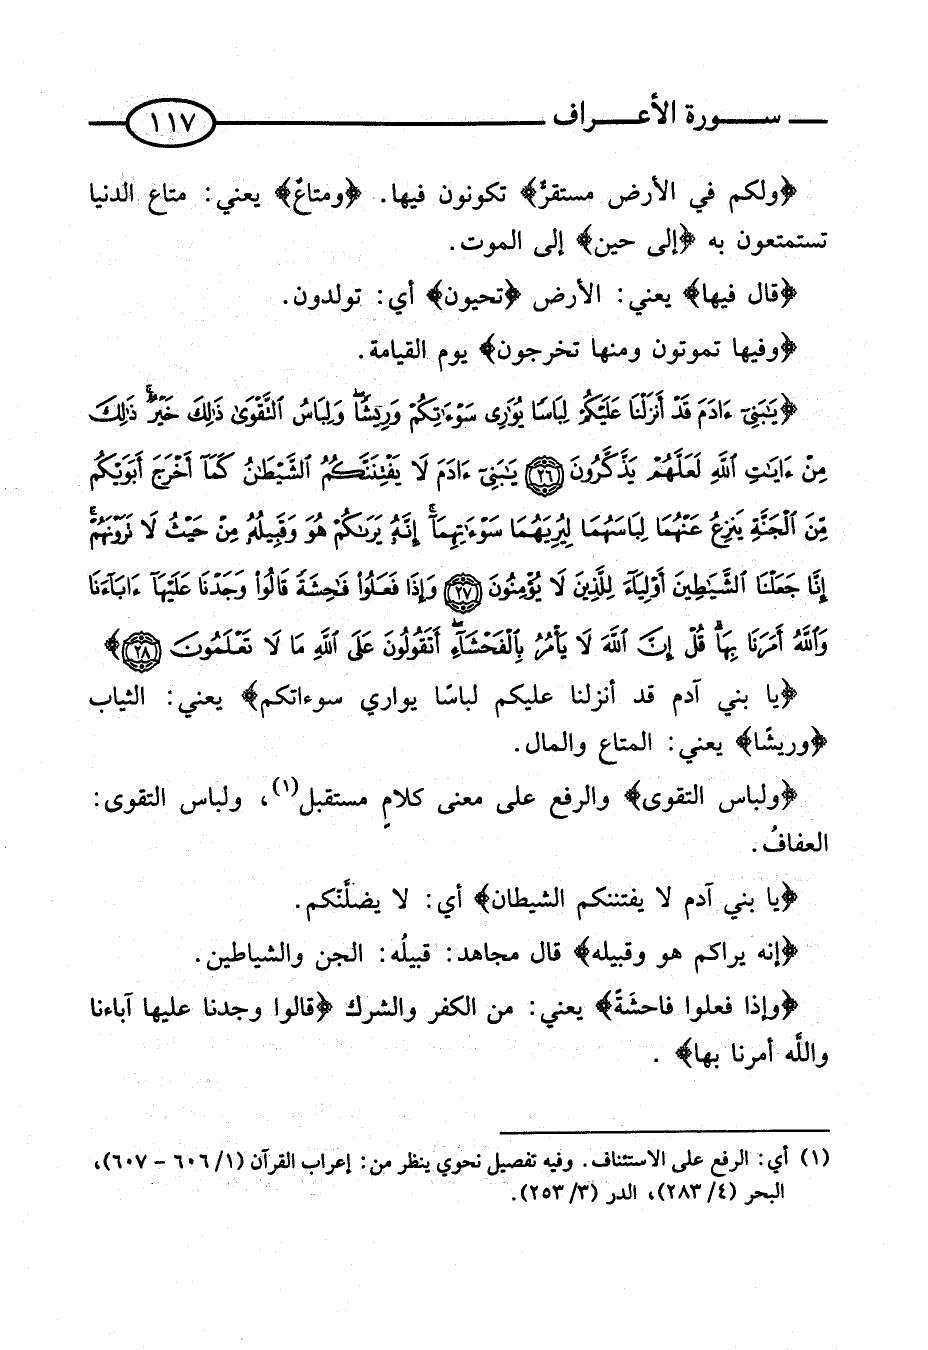 ســـورة الأعـــراف ١١٧
﴿ولكم في الأرض مستقرٌّ﴾ تكونون فيها. ﴿ومتاعٌ﴾ يعني: متاع الدنيا
تستمتعون به ﴿إلى حين﴾ إلى الموت.
﴿قال فيها﴾ يعني: الأرض ﴿تحيون﴾ أي: تولدون.
﴿وفيها تموتون ومنها تخرجون﴾ يوم القيامة.
﴿يَٰبَنِىٓ ءَادَمَ قَدْ أَنزَلْنَا عَلَيْكُمْ لِبَاسًا يُوَٰرِى سَوْءَٰتِكُمْ وَرِيشًا ۖ وَلِبَاسُ ٱلتَّقْوَىٰ ذَٰلِكَ خَيْرٌ ۚ ذَٰلِكَ
مِنْ ءَايَٰتِ ٱللَّهِ لَعَلَّهُمْ يَذَّكَّرُونَ ٢٦ يَٰبَنِىٓ ءَادَمَ لَا يَفْتِنَنَّكُمُ ٱلشَّيْطَٰنُ كَمَآ أَخْرَجَ أَبَوَيْكُم
مِّنَ ٱلْجَنَّةِ يَنزِعُ عَنْهُمَا لِبَاسَهُمَا لِيُرِيَهُمَا سَوْءَٰتِهِمَآ ۗ إِنَّهُۥ يَرَىٰكُمْ هُوَ وَقَبِيلُهُۥ مِنْ حَيْثُ لَا تَرَوْنَهُمْ ۗ
إِنَّا جَعَلْنَا ٱلشَّيَٰطِينَ أَوْلِيَآءَ لِلَّذِينَ لَا يُؤْمِنُونَ ٢٧ وَإِذَا فَعَلُوا۟ فَٰحِشَةً قَالُوا۟ وَجَدْنَا عَلَيْهَآ ءَابَآءَنَا
وَٱللَّهُ أَمَرَنَا بِهَا ۗ قُلْ إِنَّ ٱللَّهَ لَا يَأْمُرُ بِٱلْفَحْشَآءِ ۖ أَتَقُولُونَ عَلَى ٱللَّهِ مَا لَا تَعْلَمُونَ ٢٨﴾
﴿يا بني آدم قد أنزلنا عليكم لباسًا يواري سوءاتكم﴾ يعني: الثياب
﴿وريشًا﴾ يعني: المتاع والمال.
﴿ولباس التقوى﴾ والرفع على معنى كلامٍ مستقبل(١)، ولباس التقوى:
العفافُ.
﴿يا بني آدم لا يفتننكم الشيطان﴾ أي: لا يضلَّنّكم.
﴿إنه يراكم هو وقبيله﴾ قال مجاهد: قبيلُه: الجن والشياطين.
﴿وإذا فعلوا فاحشَةً﴾ يعني: من الكفر والشرك ﴿قالوا وجدنا عليها آباءنا
واللَّه أمرنا بها﴾ .
(١) أي: الرفع على الاستئناف. وفيه تفصيل نحوي ينظر من: إعراب القرآن (١/ ٦٠٦ - ٦٠٧)،
البحر (٤/ ٢٨٣)، الدر (٣/ ٢٥٣).